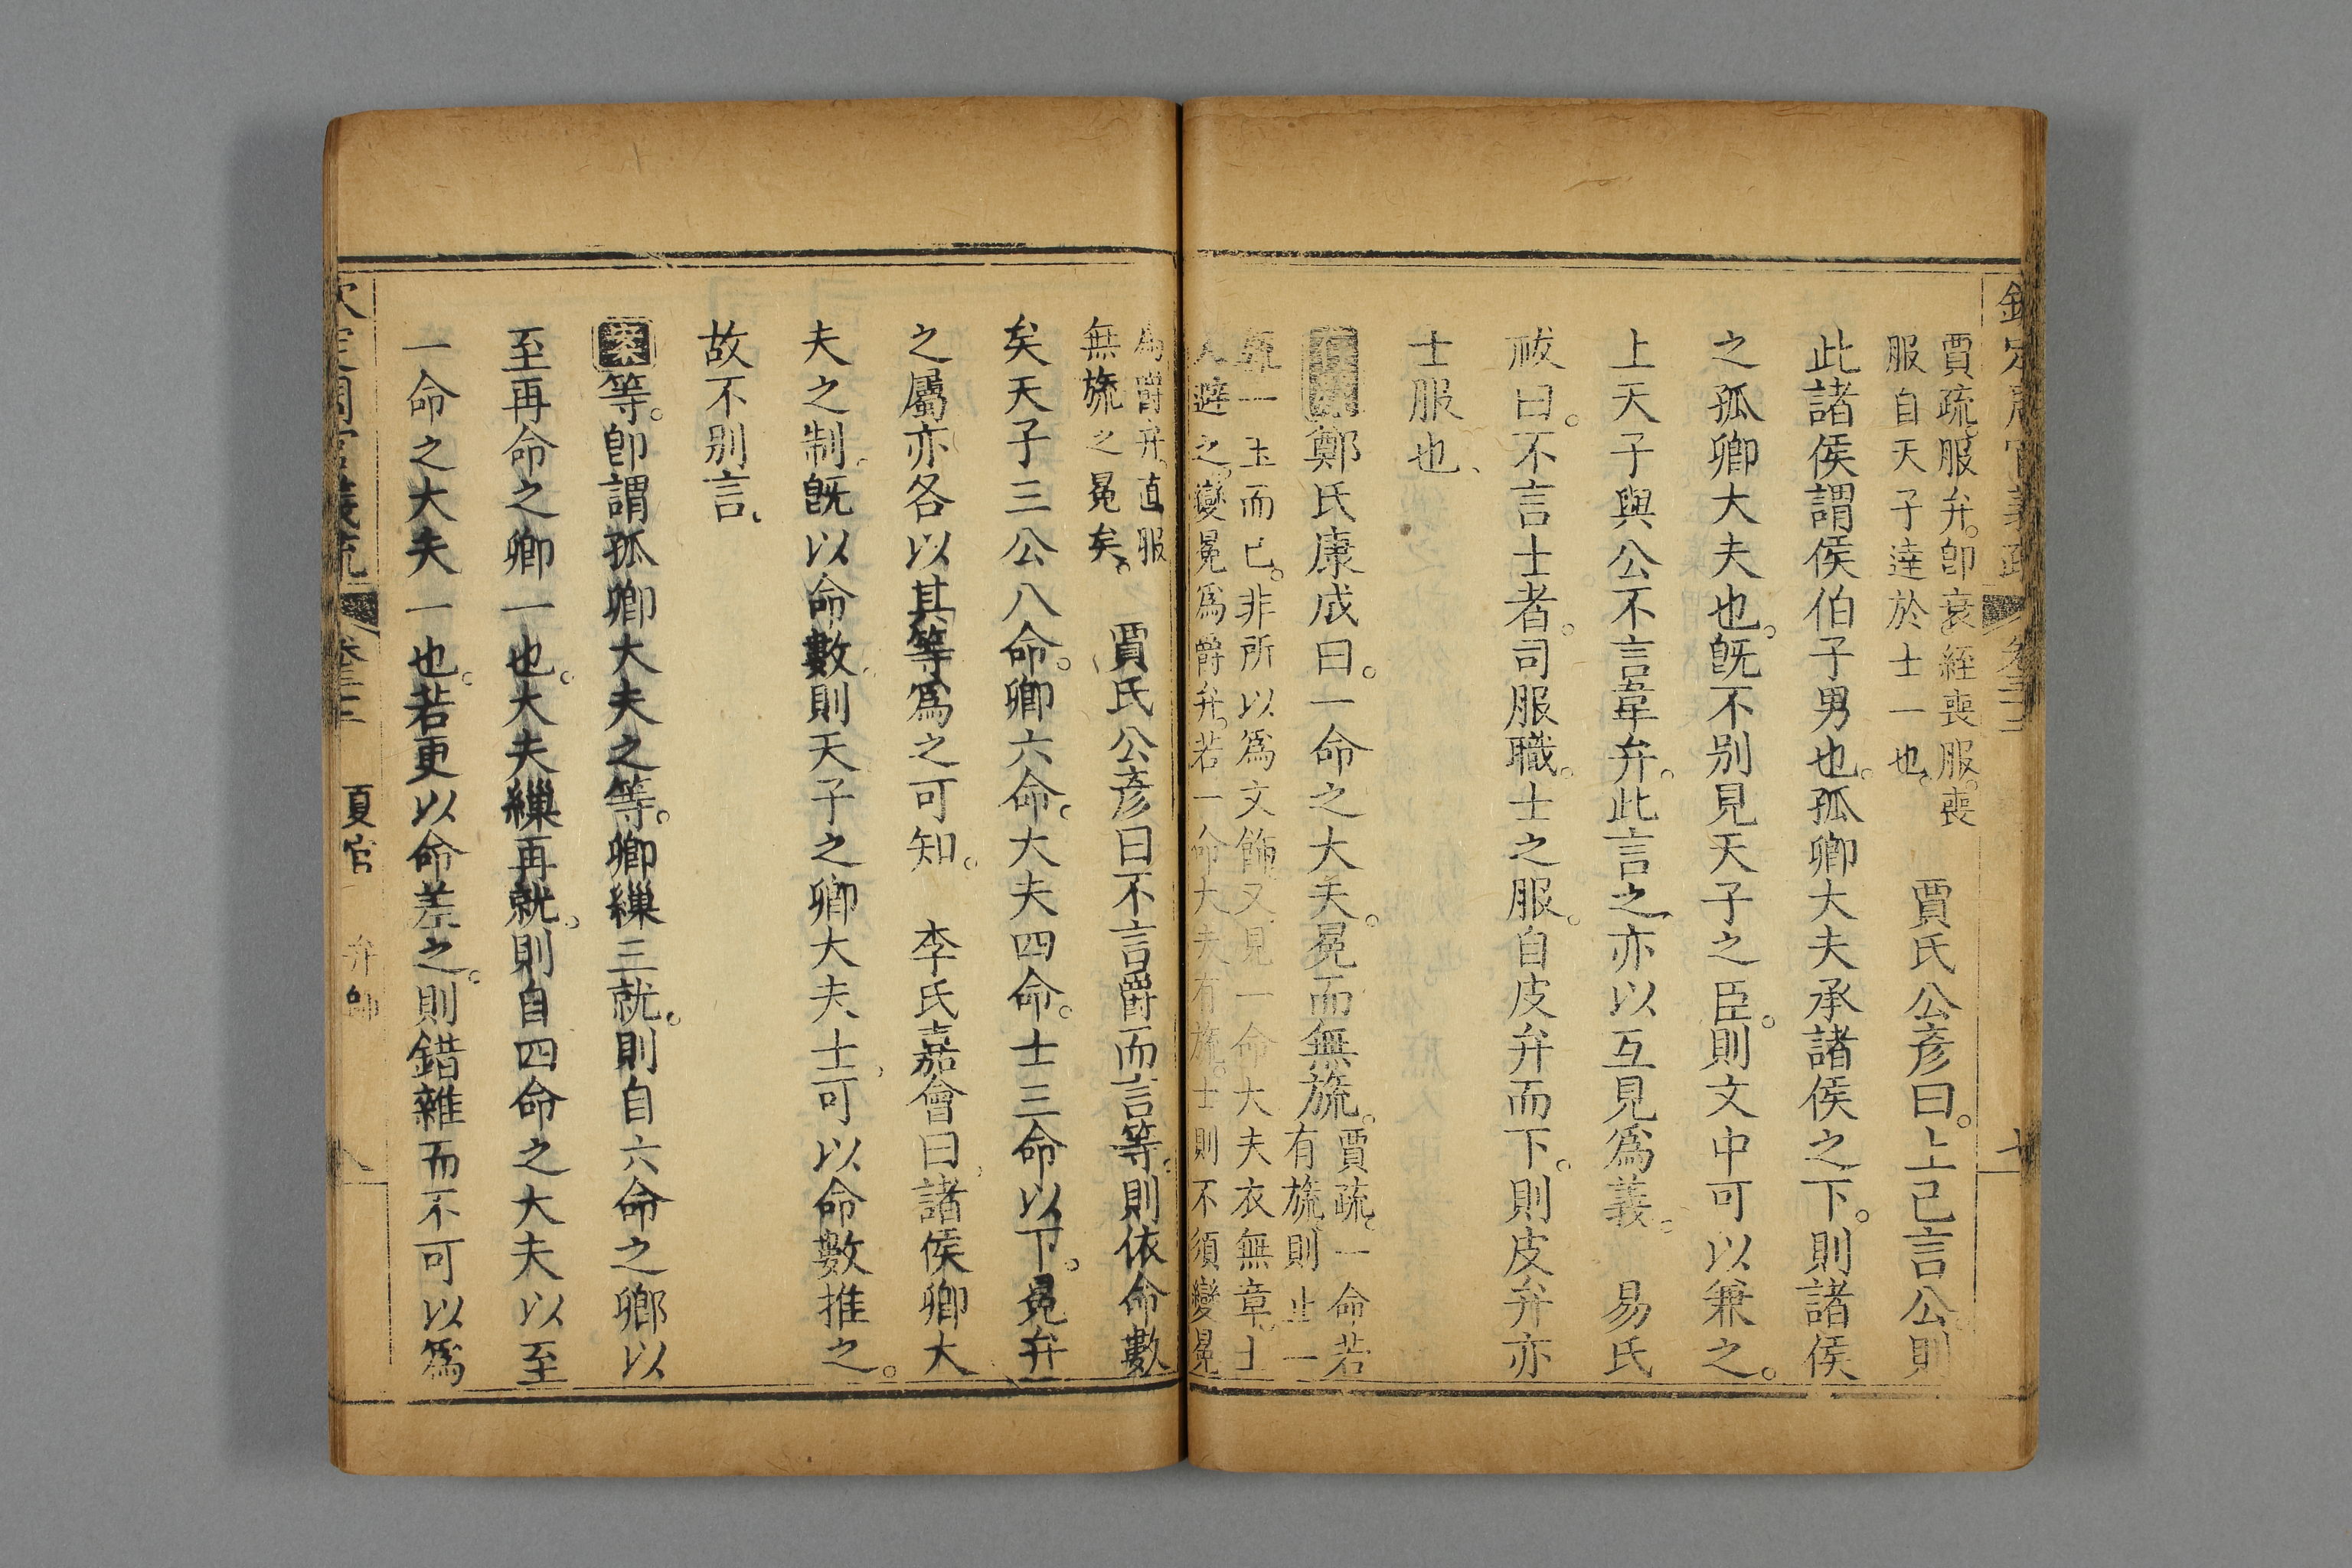 賈疏。服弁。卽衰絰喪服。喪
服自天子達於士一也。
賈氏公彥曰。上已言公。則
此諸侯謂侯伯子男也。孤卿大夫承諸侯之下。則諸侯
之孤卿大夫也。旣不别見天子之臣。則文中可以兼之。
上天子與公不言韋弁。此言之亦以互見爲義。 易氏
祓曰。不言士者。司服職。士之服。自皮弁而下。則皮弁亦
士服也、
鄭氏康成曰。一命之大夫。冕而無旒。
賈疏。一命若
有旒。則止一
旒一玉而已。非所以爲文飾。又見一命大夫衣無章。士
又避之。變冕爲爵弁。若一命大夫有旒。士則不須變冕
爲爵弁。直服
無旒之冕矣。
賈氏公彥曰不言爵而言等。則依命數
矣天子三公八命。卿六命。大夫四命。士三命以下。冕弁
之屬亦各以其等爲之可知。 李氏嘉會曰、諸侯卿大
夫之制、旣以命數、則天子之卿大夫士、可以命數推之。
故不别言、
案等。卽謂孤卿大夫之等。卿繅三就。則自六命之卿以
至再命之卿一也。大夫繅再就。則自四命之大夫以至
一命之大夫一也。若更以命差之。則錯雜而不可以爲
欽定周官義疏 卷三三
夏官 弁師